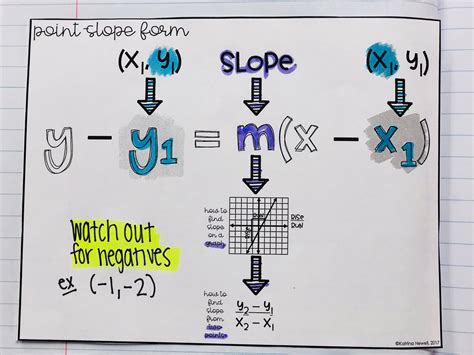 point-slope form
(x₁, y₁) SLOPE (x₁, y₁)
y - y₁ = m(x - x₁)
how to
find
slope
on a
graph
RUN
RISE
RISE
RUN
watch out
for negatives
ex (-1, -2)
how to
find
slope
from
two
points
y₂ - y₁
x₂ - x₁
©Katrina Newell, 2017